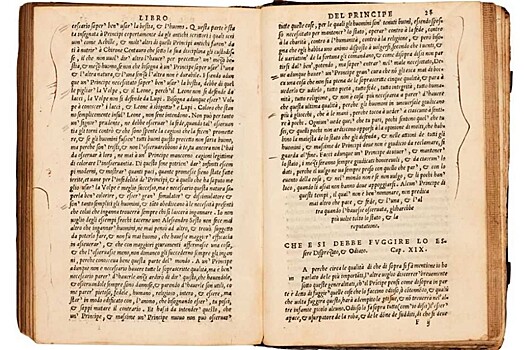 LIBRO
cessario saper ben' usar' la bestia, et l'huomo. Questa parte è sta
ta insegnata à Principi copertamente da gli antichi scrittori i quali scri
uon' come Achille, et molt' altri de quelli Principi antichi furon' da
ti à Chirone Centauro che sotto la sua disciplina gli custodis-
se, il che non vuol' dir' altro l'hauer' per precettor' un' mezo bes
tia, et mezo huomo, se non che bisogna à un' Principe saper' usar' l'una
et l'altra natura, et l'una senza l'altra non è durabile. Essendo adun
que un' Principe necessitato saper' ben' usar' la bestia, debbe di quel
le pigliar' la Volpe, et il Leone, perche il Leon non si defende da
lacci, la Volpe non si defende da Lupi. Bisogna adunque esser' Vol
pe à conoscer' i lacci, et Leone à sbigottir' i Lupi. Coloro che stan
no semplicemente insul' Leone, non sene intendono. Non può per tanto
un' Signor' prudente, ne debbe osseruar' la fede, quando tal' osseruan
tia gli torni contro et che sono spente le cagioni che la fecen' promette
re, et se gli huomini fussen' tutti buoni questo precetto non saria buono,
ma perche son' tristi, et non l'osseruarebbono à te, tu ancora non l'hai
da osseruar' à loro, ne mai à un' Principe mancorno cagioni legitime
di colorar' l'inosseruantia. Di questo sene potrian' dar' infiniti essem
pi moderni, et mostrar' quante paci, quante promesse sieno state fatte
irrite, et uane per l'infedelità de Principi, et à quello che hà saputo me
glio usar' la Volpe è meglio successo, ma è necessario questa natura sa
perla ben' colorire, et esser' gran' simulator' et dissimulatore et
son' tanto simplici gli huomini, et tanto obediscono alle necessità presenti
che colui che inganna trouerà sempre chi si lascerà ingannare. Io non
voglio degli essempi freschi tacerne uno. Alessandro Sesto non fece mai
altro che ingannar' huomini, ne mai pensò ad altro, et trouò soggetto
da poterlo fare, et non fu mai huomo, che hauesse maggior' efficacia
in asseuerar', et che con maggiori giuramenti affermasse una cosa,
et che l'osseruasse meno, non dimanco gli succederno sempre gli ingan
ni, perche conosceua bene questa parte del' mondo. A un' Principe
adunque non è necessario hauere tutte le soprascritte qualità, ma è ben'
necessario parer' d'hauerle anzi ardirò di dir' questo, che hauendole,
et osseruandole sempre sono dannose, et parendo d'hauerle son' utili, co
me parer' pietoso, fedele, humano, religioso, intero, et essere, ma
star' in modo edificato con l'animo, che bisognando non essere, tu possi,
et sappi mutare il contrario. Et hassi da intender' questo, che
un' Principe, et massime un' Principe nuouo non può osseruar'
DEL PRINCIPE 28
tutte quelle cose, per le quali gli huomini son' tenuti buoni, essendo spes-
so necessitato per mantener' lo stato, operar' contro à la fede, contro
à la charità, contro à l'humanità, contro à la religione, et però biso
gna che egli habbia uno animo disposto à uolgersi secondo che i uenti, et
le uariationi de la fortuna gli comandano, et come di sopra dissi non par
tirsi dal' ben', potendo, ma saper' entrar' nel' male necessitato. Deue
adunque hauer' un' Principe gran' cura che nõ gli esca mai di boc
ca una cosa che non sia piena de le soprascritte cinque qualità, et paia à
uederlo et udirlo, tutto pietà, tutto fede, tutto integrità, tutto humani
tà, tutto religione, et non è cosa più necessaria à parer' d'hauere,
che questa ultima qualità, perche gli huomini in uniuersale giudicano
più à gliocchi, che à le mani, perche tocca à ueder' à ciascuno à senti
re à pochi. Ognun' uede quel' che tu pari, pochi sentono quel' che tu
sei, et quelli pochi non ardiscono opporsi à la opinion' de molti, che hab
bino la maiestà de lo stato che gli defende, et nelle attioni di tutti gli
huomini, et massime de Principi doue non è giuditio da reclamare, si
guarda al' fine. Facci adunque un' Principe di uiuer' et mantener'
lo stato, i mezi saranno sempre giudicati honoreuoli, et da ciascun' lo
dati, perche il uulgo ne uà sempre preso con quello che par', et con lo
euento della cosa, et nel' mondo non è se non uulgo, et li pochi han'
luoco, quando li assai non hanno doue appoggiarsi. Alcun' Principe di
questi tempi, il qual' non è ben' nominare, non predica
mai altro che pace, et fede, et l'una, et l'al
tra quando l'hauesse osseruata, gli harebbe
più uolte tolto lo stato, et la
reputatione.
CHE E SI DEBBE FVGGIRE LO ES-
sere Desprezato, et Odiato. Cap. XIX.
A perche circa le qualità di che di sopra si fà mentione io ho
parlato de le più importanti, l'altre uoglio discorrer' breuemente
sotto queste generalità, che il Principe pensi come di sopra in par
te è detto di fuggir' quelle cose che lo faccino odioso et contennendo, et qua
lunche uolta fuggirà questo, harà adempito le parti sue, et nõ trouerrà nel' al
tre infamie pericolo alcuno. Odioso lo fa sopra tutto (com' io dissi) l'esser' ra
pace, et usurpatore de la roba, et de le donne de sudditi, di che deue
F ij